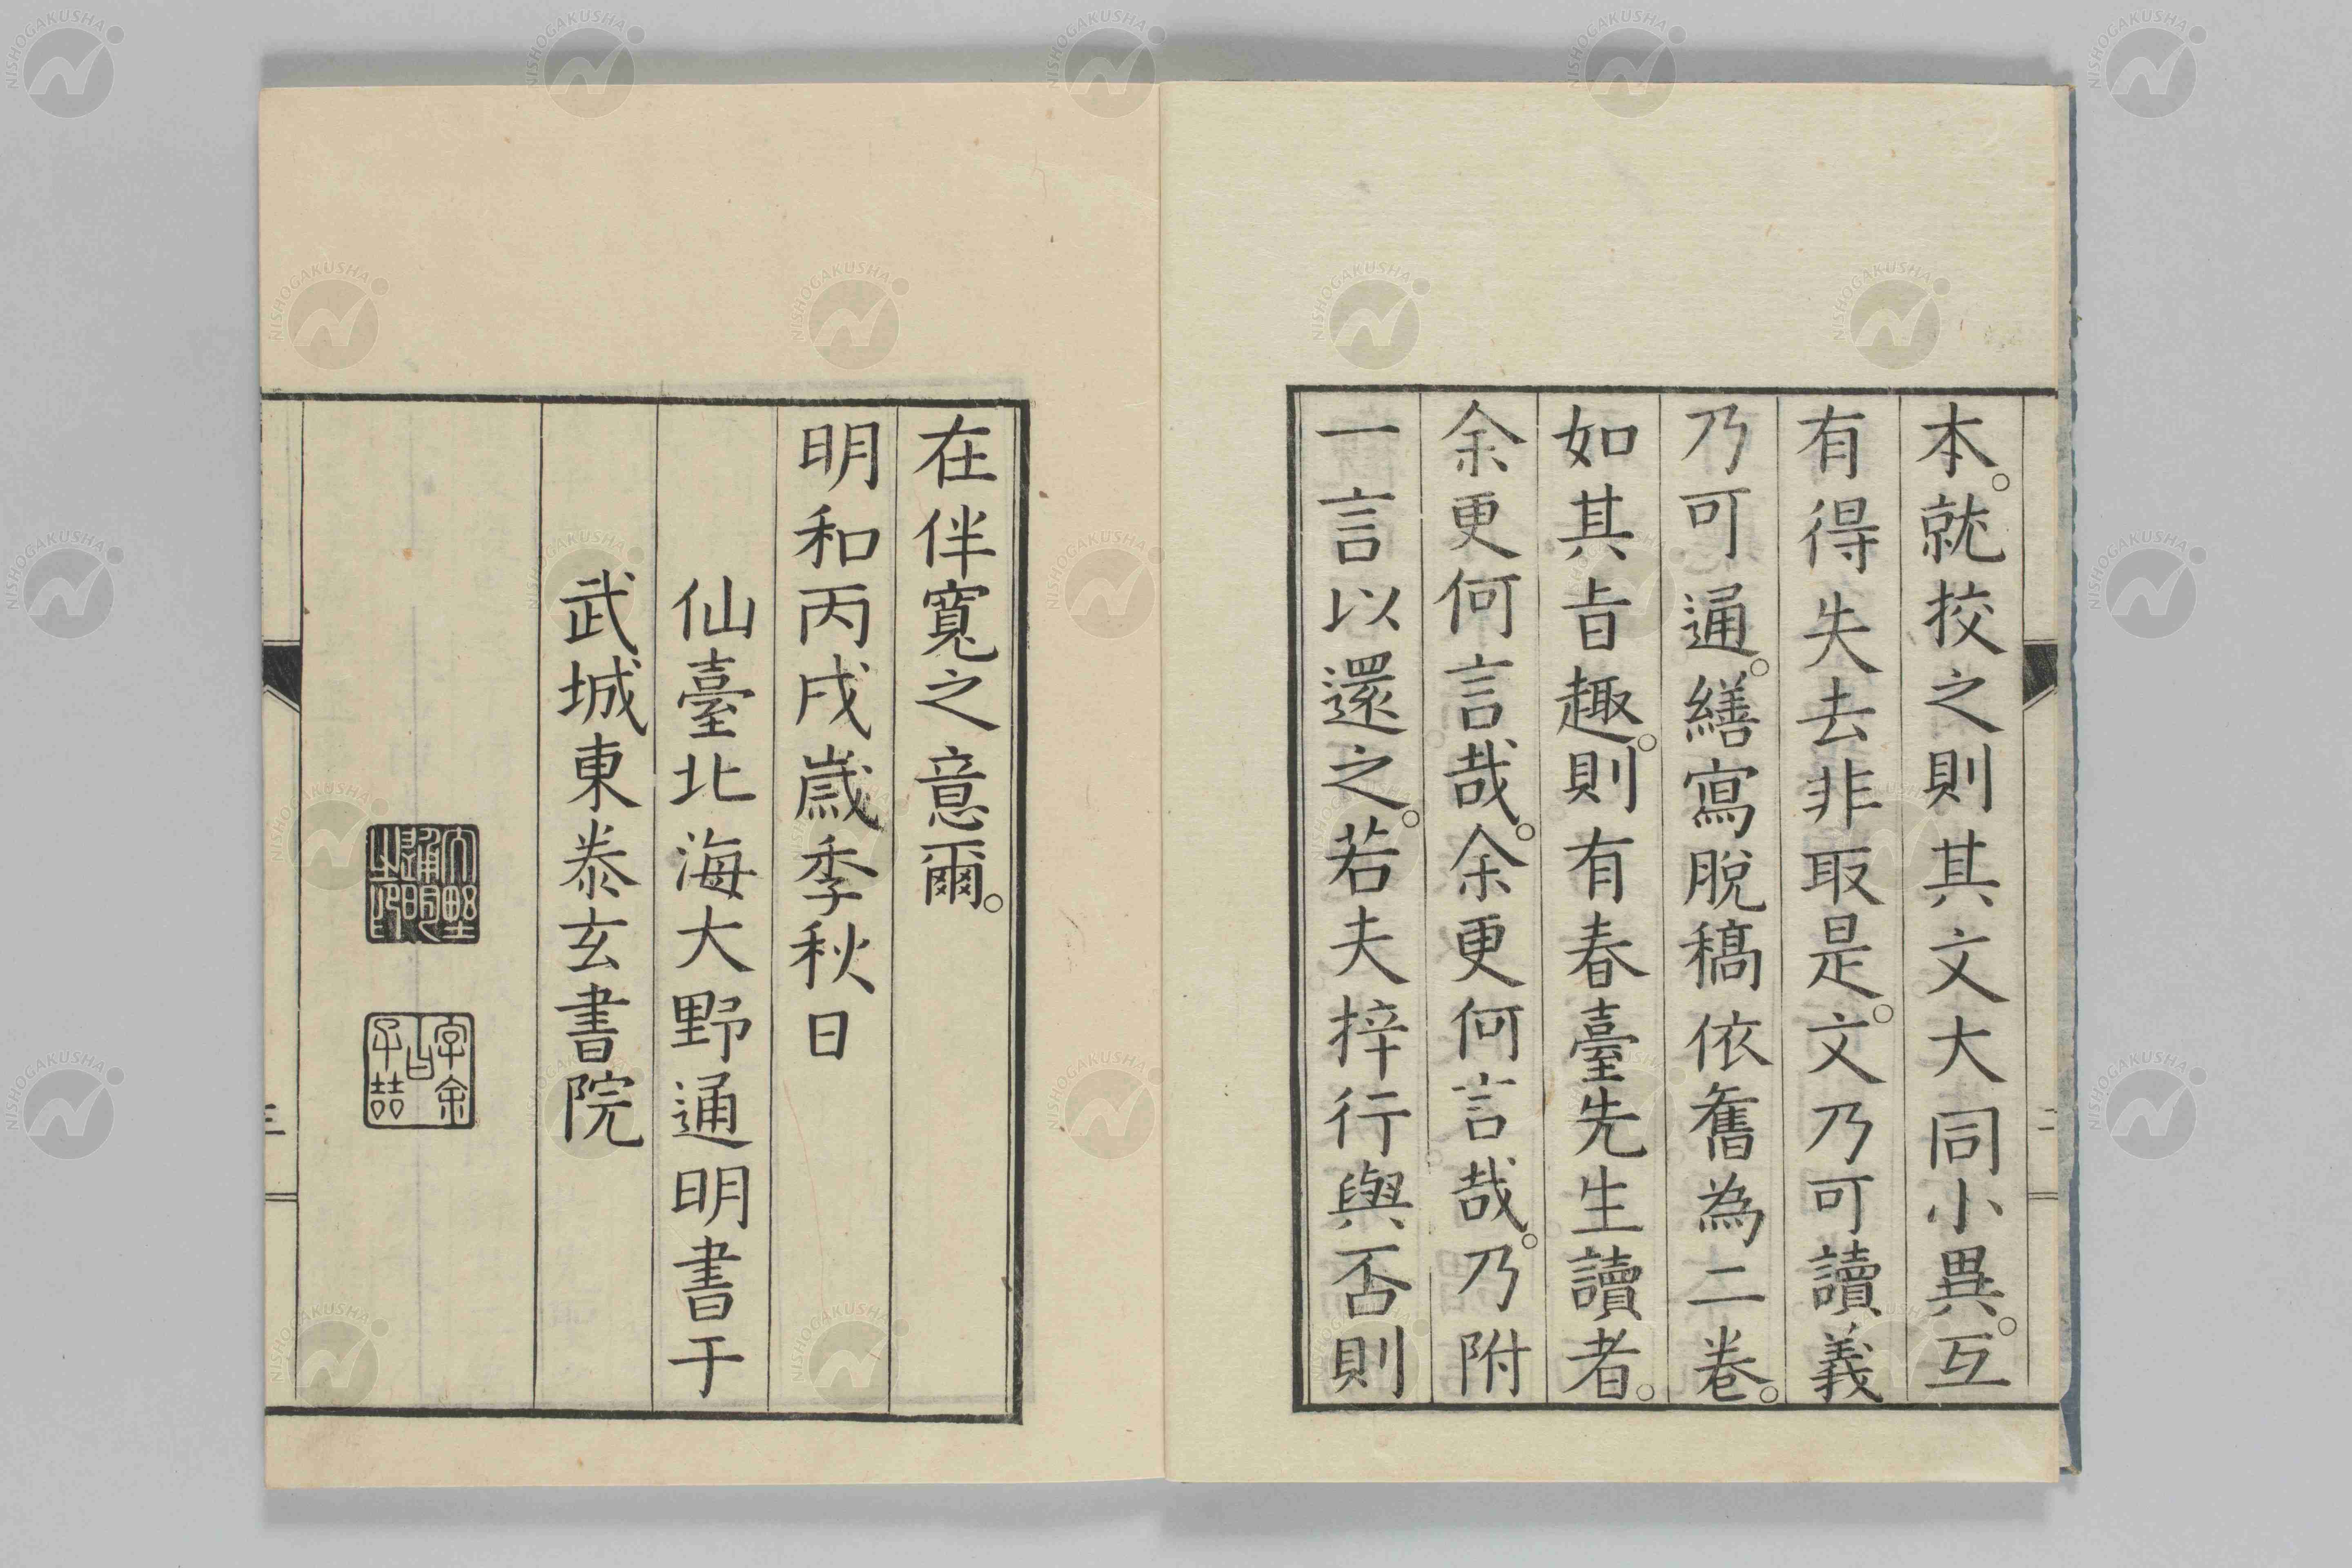 本。就挍之則其文大同小異。互
有得失去非取是。文乃可讀義
乃可通。繕寫脫稿依舊為二卷。
如其旨趣。則有春臺先生讀者。
余更何言哉。余更何言哉。乃附
一言以還之。若夫梓行與否則
二
在伴寬之意爾。
明和丙戌歲季秋日
仙臺北海大野通明書于
武城東泰玄書院
大野通明之印
字余曰子喆
三
NISHOGAKUSHA